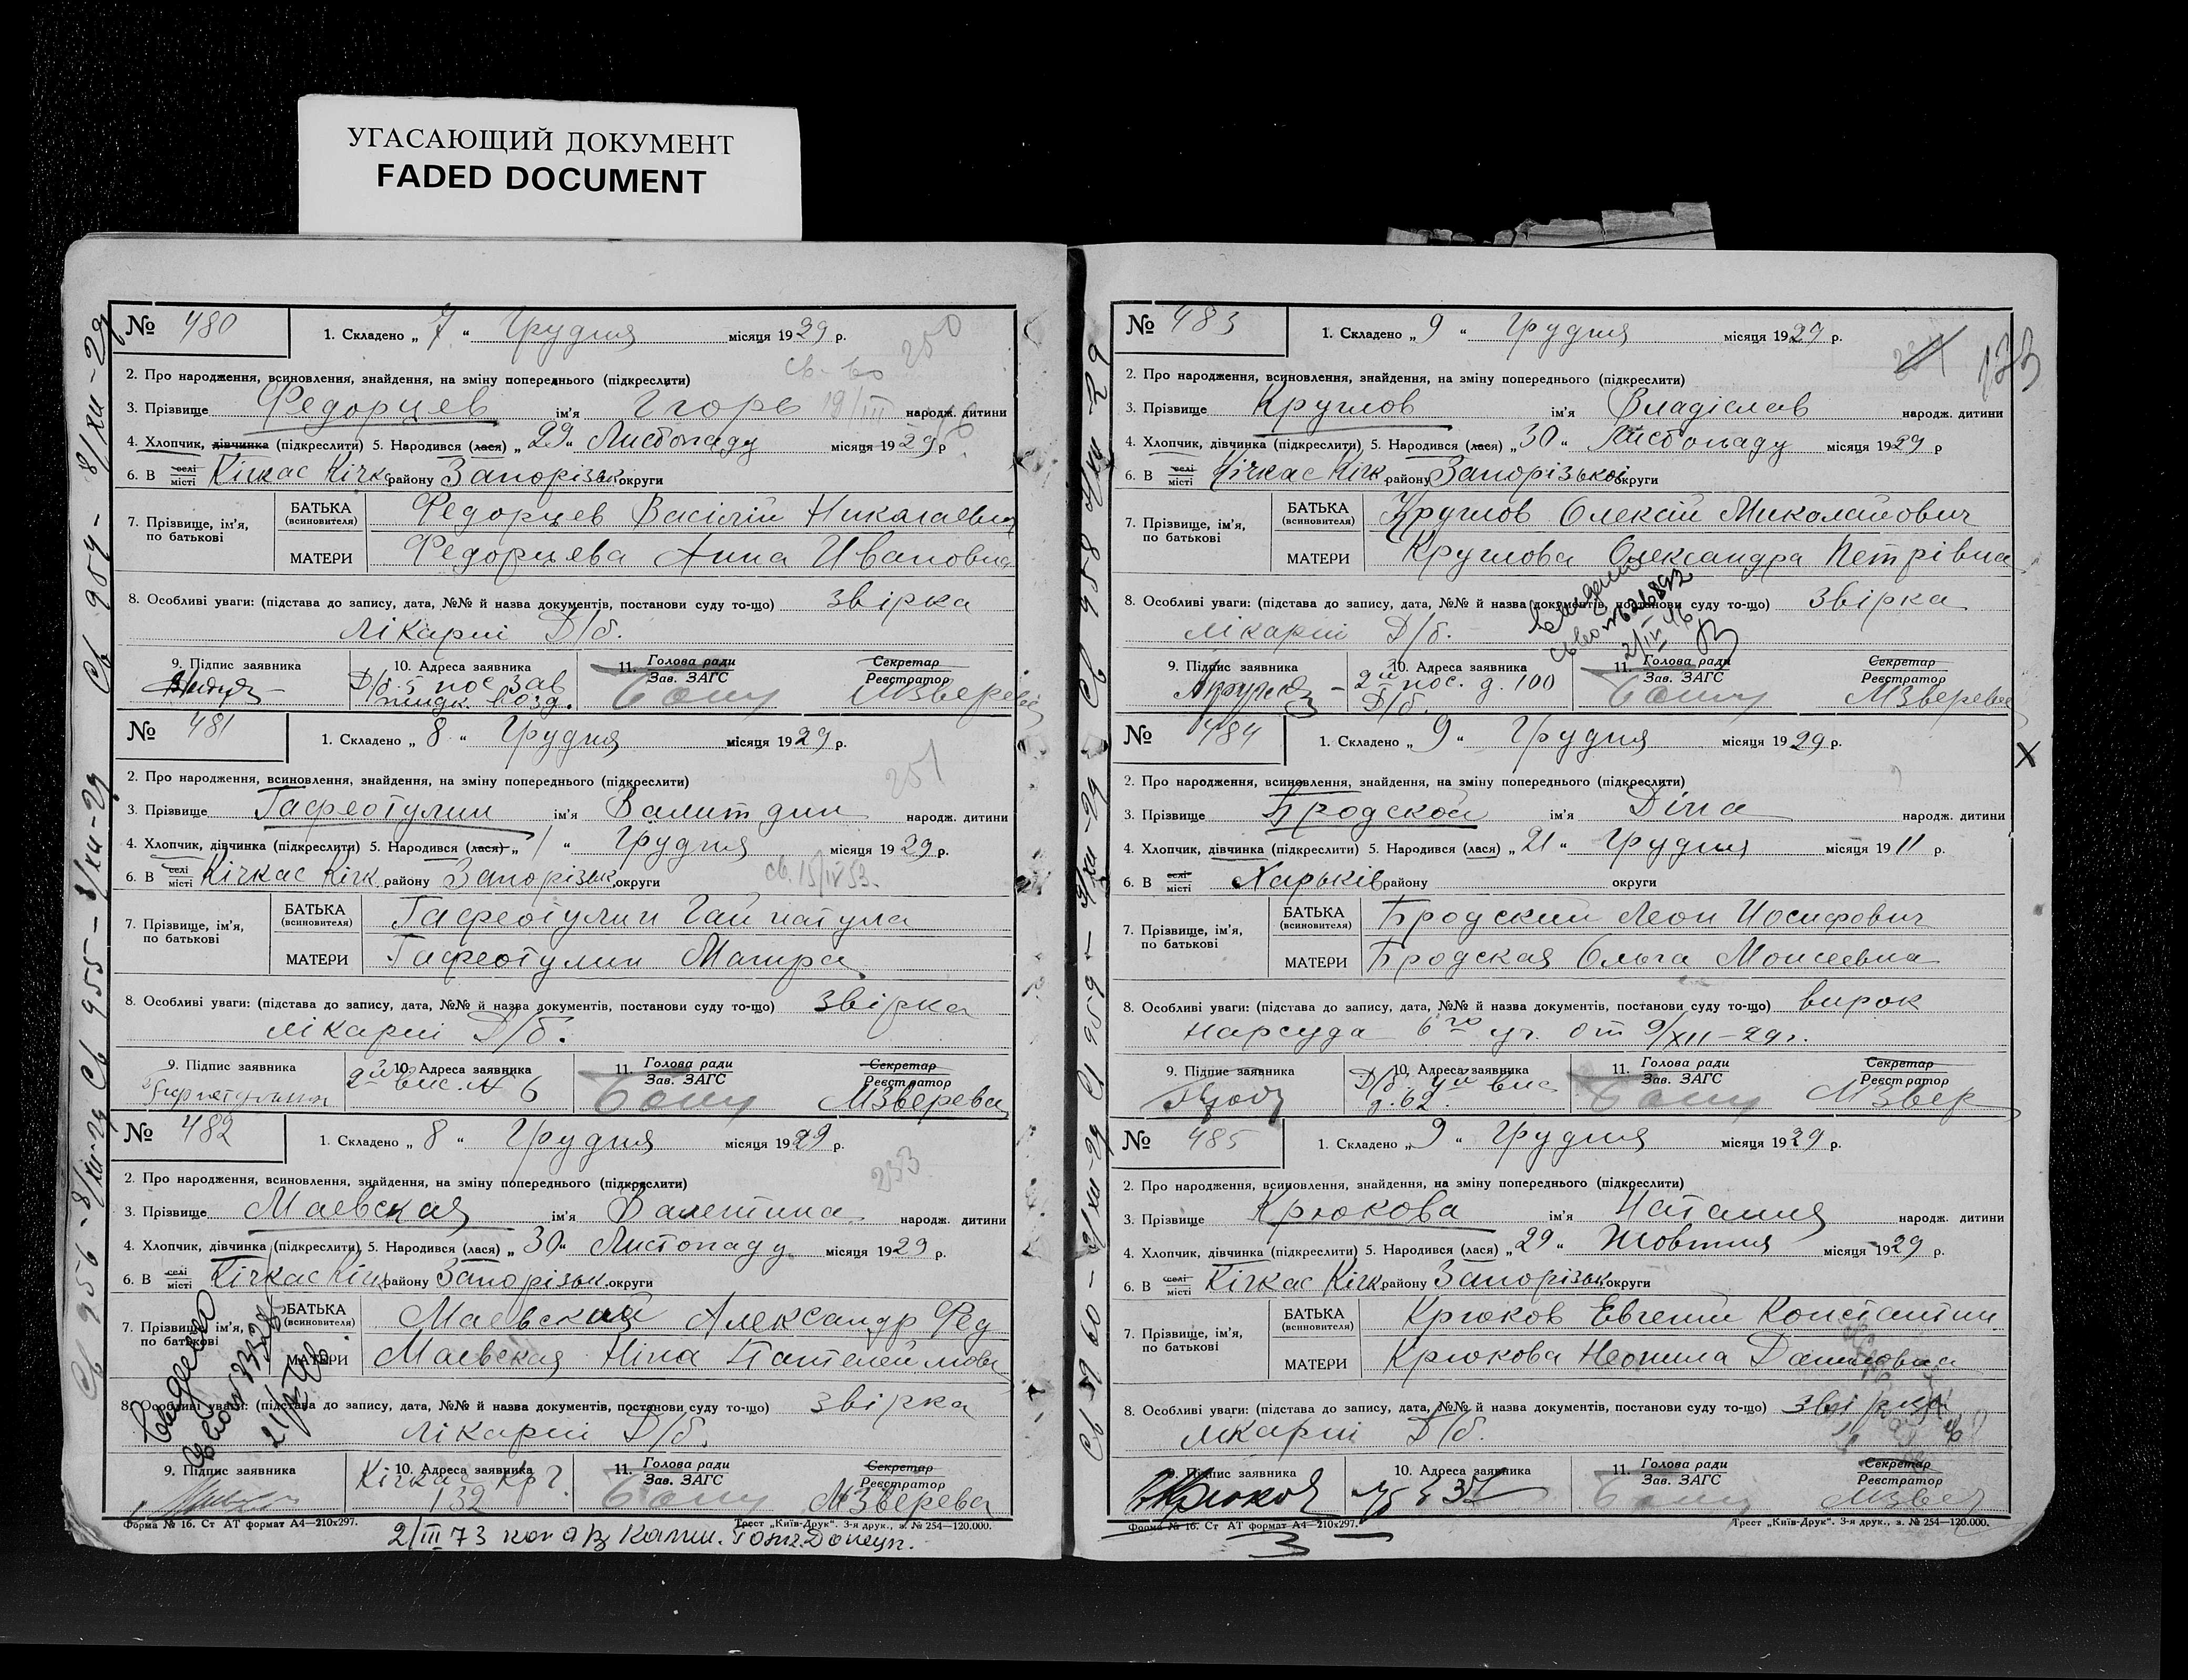 УГАСАЮЩИЙ ДОКУМЕНТ
FADED DOCUMENT
№ 480
1. Складено „ 7 “ Грудня місяця 1929 р.
св-во 250
2. Про народження, всиновлення, знайдення, на зміну попереднього (підкреслити)
3. Прізвище Федорцев ім'я Ігорь народж. дитини
19/III 46
4. Хлопчик, дівчинка (підкреслити) 5. Народився (лася) „ 29 “ Листопаду місяця 1929 р
6. В селі місті Кічкас Кічк району Запорізьк округи
7. Прізвище, ім'я, по батькові
БАТЬКА (всиновителя) Федорцев Васілій Николаевич
МАТЕРИ Федорцева Анна Ивановна
8. Особливі уваги: (підстава до запису, дата, №№ й назва документів, постанови суду то-що) звірка
лікарні Д/б.
9. Підпис заявника
10. Адреса заявника Д/б. 5 пос зав
11. Голова ради Зав. ЗАГС
Секретар Реєстратор МЗверева
№ 481
1. Складено „ 8 “ Грудня місяця 1929 р.
251
2. Про народження, всиновлення, знайдення, на зміну попереднього (підкреслити)
3. Прізвище Гафеотулин ім'я Валит дин народж. дитини
4. Хлопчик, дівчинка (підкреслити) 5. Народився (лася) „ 1 “ Грудня місяця 1929 р.
6. В селі місті Кічкас Кічк району Запорізьк округи
св. 15/IV 53.
7. Прізвище, ім'я, по батькові
БАТЬКА (всиновителя) Гафеотулин Гайнатула
МАТЕРИ Гафеотулин Магира
8. Особливі уваги: (підстава до запису, дата, №№ й назва документів, постанови суду то-що) звірка
лікарні Д/б.
9. Підпис заявника
10. Адреса заявника 2й выс. № 6
11. Голова ради Зав. ЗАГС
Секретар Реєстратор МЗверева
№ 482
1. Складено „ 8 “ Грудня місяця 1929 р.
253
2. Про народження, всиновлення, знайдення, на зміну попереднього (підкреслити)
3. Прізвище Маевская ім'я Валентина народж. дитини
4. Хлопчик, дівчинка (підкреслити) 5. Народився (лася) „ 30 “ Листопаду місяця 1929 р.
6. В селі місті Кічкас Кічк району Запорізьк округи
7. Прізвище, ім'я, по батькові
БАТЬКА (всиновителя) Маевский Александр Фед
МАТЕРИ Маевская Ніна Пантелеймовн
8. Особливі уваги: (підстава до запису, дата, №№ й назва документів, постанови суду то-що) звірка
лікарні Д/б.
9. Підпис заявника
10. Адреса заявника Кічкас Кр Г. 132
11. Голова ради Зав. ЗАГС
Секретар Реєстратор МЗверева
Форма № 16. Ст АТ формат А4—210x297.
Трест „Київ-Друк“. 3-я друк., з. № 254—120.000.
2/III 73
№ 483
1. Складено „ 9 “ Грудня місяця 1929 р.
133
2. Про народження, всиновлення, знайдення, на зміну попереднього (підкреслити)
3. Прізвище Круглов ім'я Владіслав народж. дитини
4. Хлопчик, дівчинка (підкреслити) 5. Народився (лася) „ 30 “ Листопаду місяця 1929 р
6. В селі місті Кічкас Кічк району Запорізької округи
7. Прізвище, ім'я, по батькові
БАТЬКА (всиновителя) Круглов Олексій Миколайович
МАТЕРИ Круглова Олександра Петрівна
8. Особливі уваги: (підстава до запису, дата, №№ й назва документів, постанови суду то-що) звірка
лікарні Д/б.
9. Підпис заявника
10. Адреса заявника 2й пос. д. 100 Д/б.
11. Голова ради Зав. ЗАГС
Секретар Реєстратор МЗверева
№ 484
1. Складено „ 9 “ Грудня місяця 1929 р.
X
2. Про народження, всиновлення, знайдення, на зміну попереднього (підкреслити)
3. Прізвище Бродской ім'я Діна народж. дитини
4. Хлопчик, дівчинка (підкреслити) 5. Народився (лася) „ 21 “ Грудня місяця 1911 р.
6. В селі місті Харьків району округи
7. Прізвище, ім'я, по батькові
БАТЬКА (всиновителя) Бродский Леон Иосифович
МАТЕРИ Бродская Ольга Моисеевна
8. Особливі уваги: (підстава до запису, дата, №№ й назва документів, постанови суду то-що) вирок
Нарсуда 6го уч. от 9/XII-29 г.
9. Підпис заявника
10. Адреса заявника Д/б. 4й выс д. 62.
11. Голова ради Зав. ЗАГС
Секретар Реєстратор МЗвер
№ 485
1. Складено „ 9 “ Грудня місяця 1929 р.
2. Про народження, всиновлення, знайдення, на зміну попереднього (підкреслити)
3. Прізвище Крюкова ім'я Наталия народж. дитини
4. Хлопчик, дівчинка (підкреслити) 5. Народився (лася) „ 29 “ Жовтня місяця 1929 р.
6. В селі місті Кічкас Кічк району Запорізьк округи
7. Прізвище, ім'я, по батькові
БАТЬКА (всиновителя) Крюков Евгений Константин
МАТЕРИ Крюкова Неонила Даниловна
8. Особливі уваги: (підстава до запису, дата, №№ й назва документів, постанови суду то-що) звірка
лікарні Д/б.
9. Підпис заявника Крюков
10. Адреса заявника
11. Голова ради Зав. ЗАГС
Секретар Реєстратор МЗвер
Форма № 16. Ст АТ формат А4—210x297.
Трест „Київ-Друк“. 3-я друк., з. № 254—120.000.